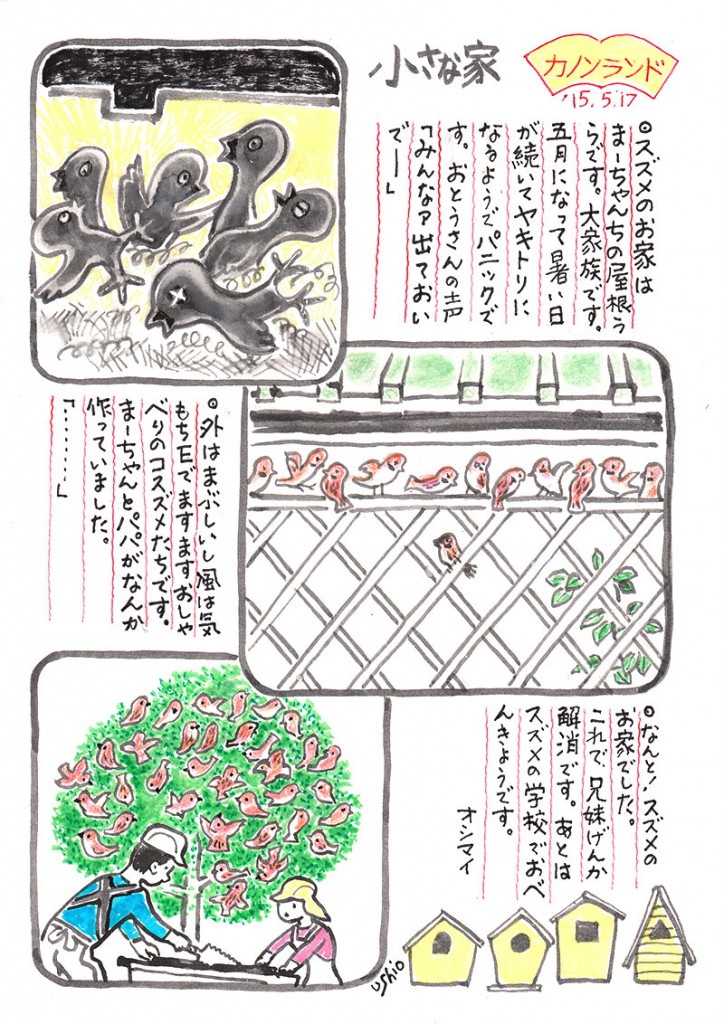 小さな家
カノンランド
'15.5.17
◎スズメのお家は
まーちゃんちの屋根う
らです。大家族です。
五月になって暑い日
が続いてヤキトリに
なるようでパニックで
す。おとうさんの声
「みんなァ出ておい
でー」
◎外はまぶしいし風は気
もちEでますますおしゃ
べりのコスズメたちです。
まーちゃんとパパがなんか
作っていました。
「‥‥‥」
◎なんと!スズメの
お家でした。
これで兄妹げんか
解消です。あとは
スズメの学校でおべ
んきょうです。
オシマイ
ushio